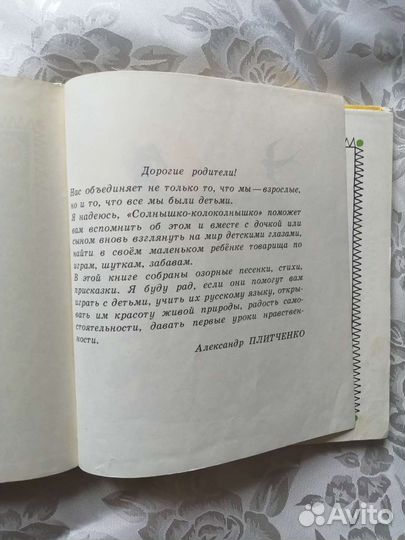 Дорогие родители!
Нас объединяет не только то, что мы — взрослые,
но и то, что все мы были детьми.
Я надеюсь, «Солнышко-колоколнышко» поможет
вам вспомнить об этом и вместе с дочкой или
сыном вновь взглянуть на мир детскими глазами,
найти в своём маленьком ребёнке товарища по
играм, шуткам, забавам.
В этой книге собраны озорные песенки, стихи,
присказки. Я буду рад, если они помогут вам
играть с детьми, учить их русскому языку, откры-
вать им красоту живой природы, радость само-
стоятельности, давать первые уроки нравствен-
ности.
Александр ПЛИТЧЕНКО
Avito